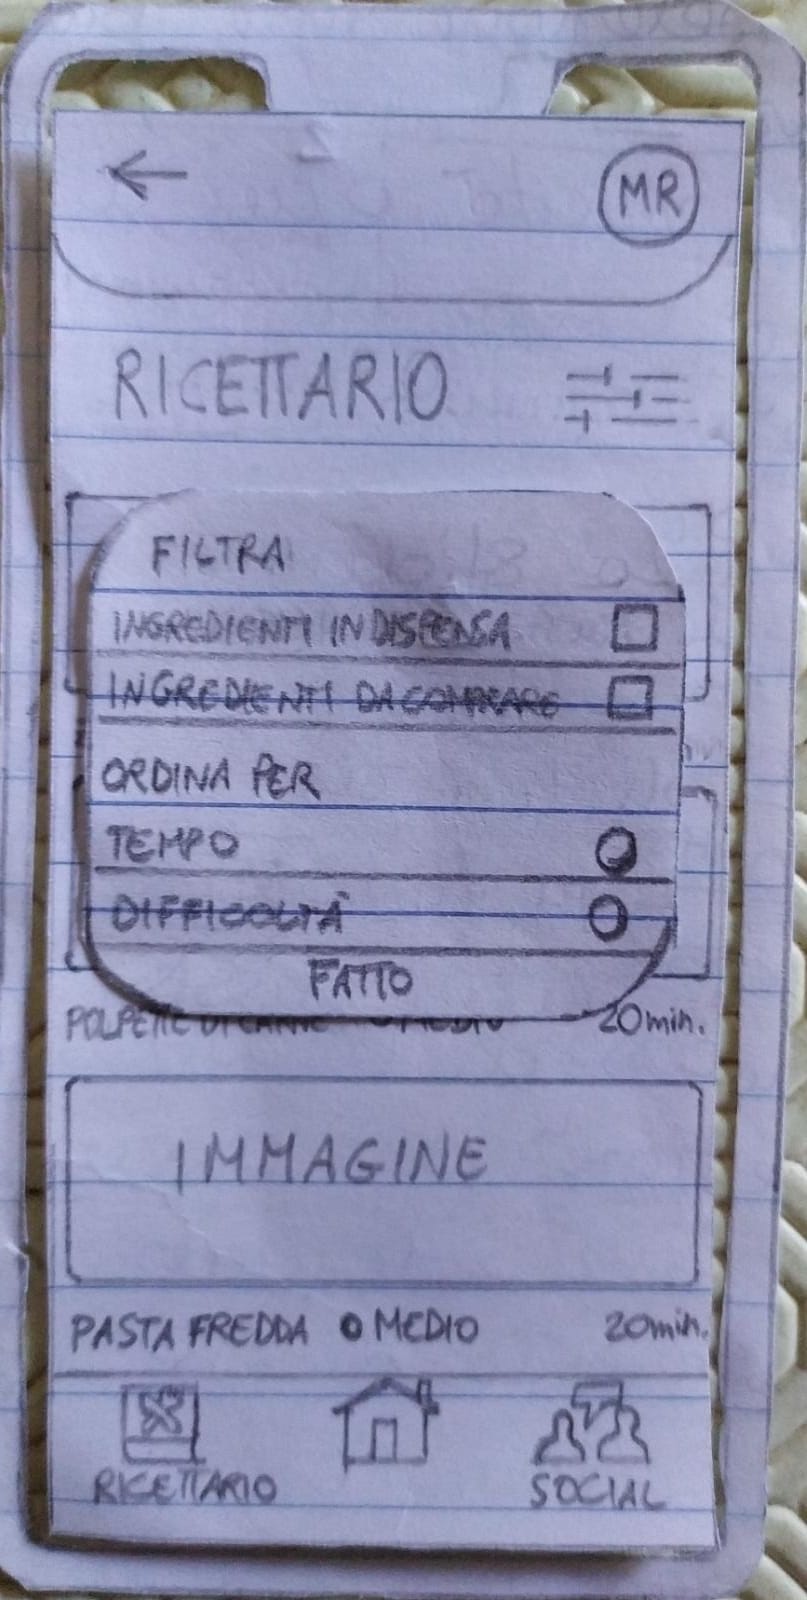 MR
RICETTARIO
FILTRA
INGREDIENTI IN DISPENSA
INGREDIENTI DA COMPRARE
ORDINA PER
TEMPO
DIFFICOLTÀ
FATTO
POLPETTE DI CARNE MEDIO 20min.
IMMAGINE
PASTA FREDDA MEDIO 20min.
RICETTARIO SOCIAL